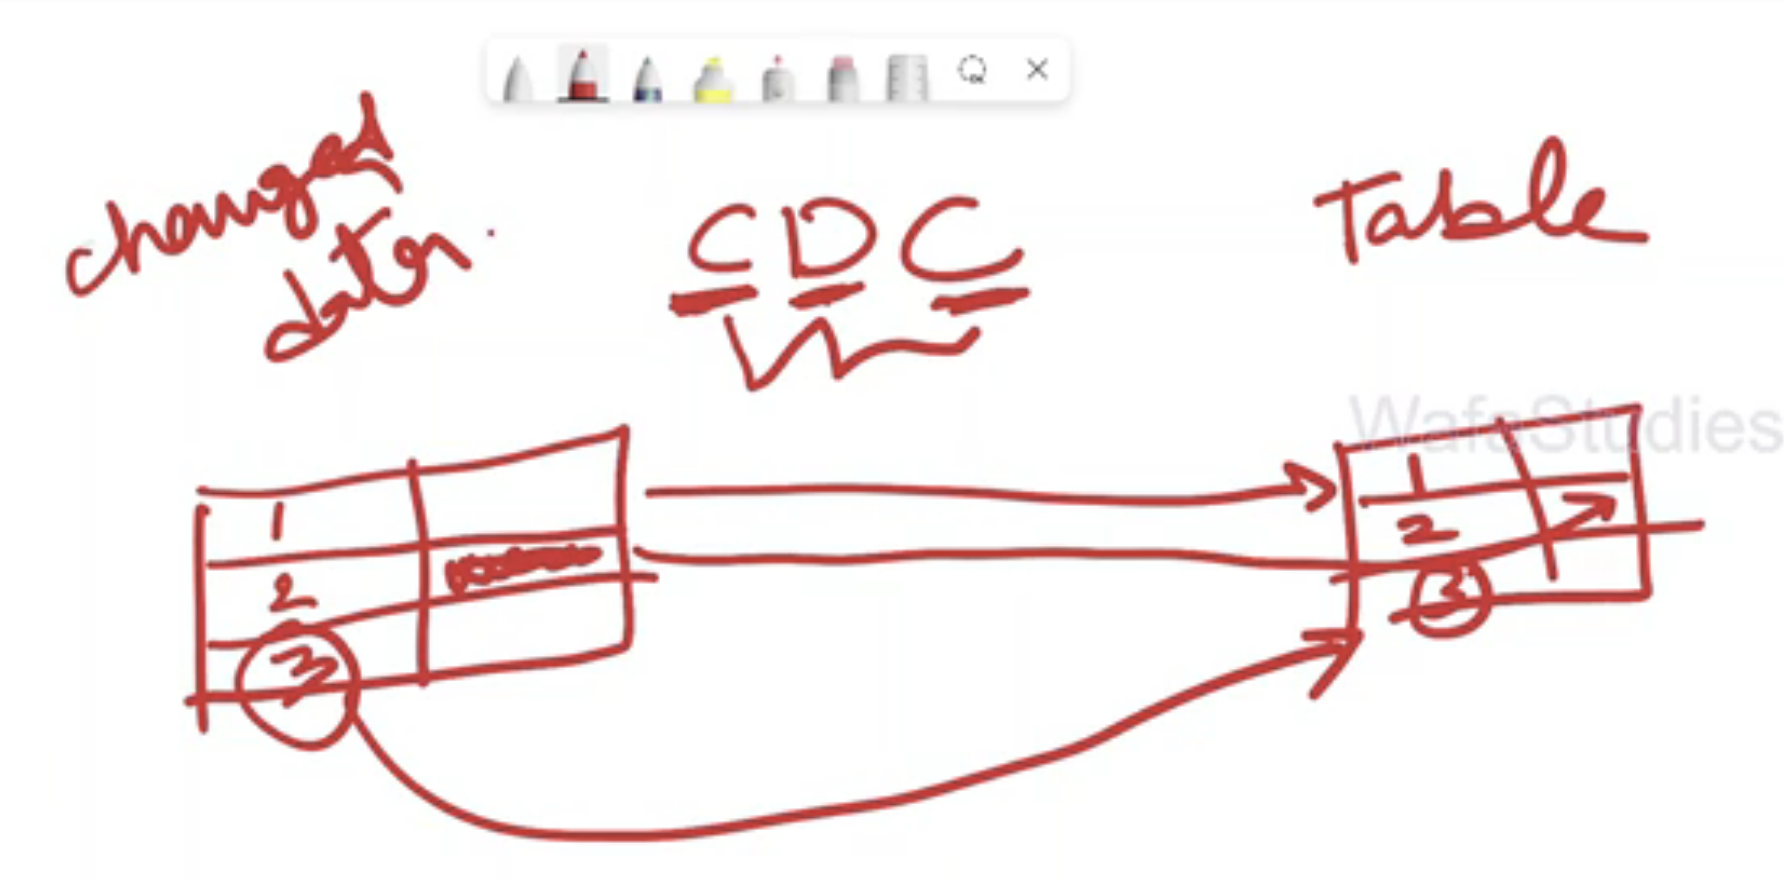 changed
data
CDC
Table
WafaStudies
1
2
3
1
2
3